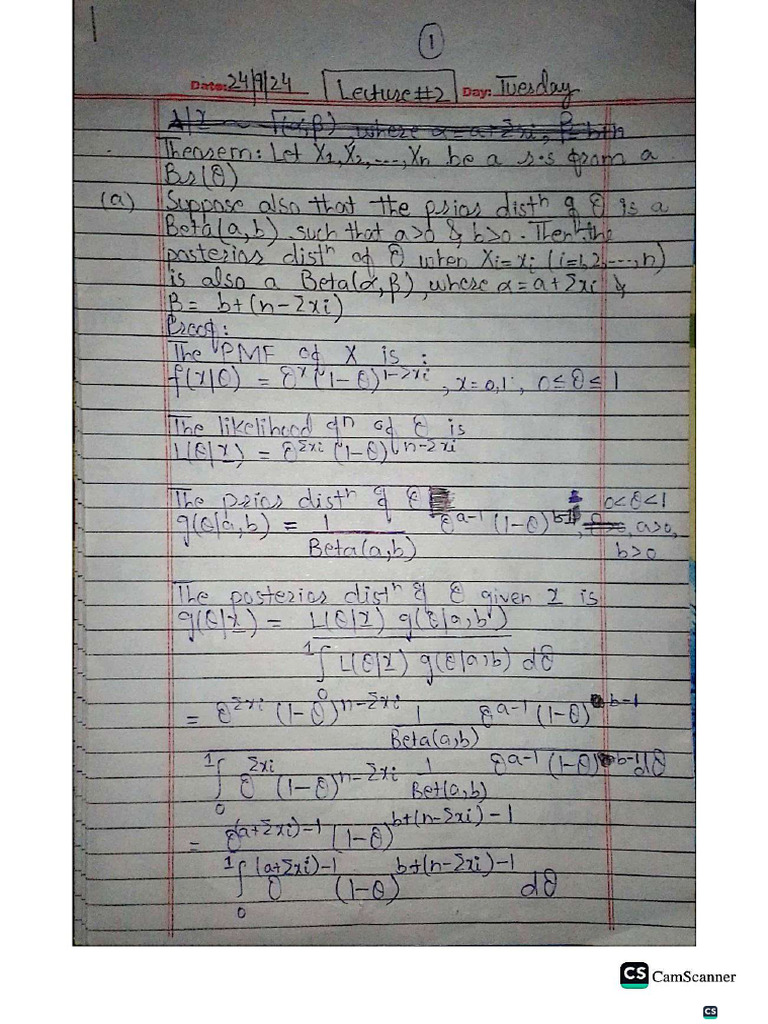 1
Date: 24/9/24 Lecture #2 Day: Tuesday
where α = a+Σxi, β = b+n
Theorem: Let X1, X2, ..., Xn be a r.s from a
Br(θ)
(a) Suppose also that the prior distⁿ of θ is a
Beta(a,b) such that a>0 & b>0. Then the
posterior distⁿ of θ when Xi=xi (i=1,2,...,n)
is also a Beta(α,β), where α = a+Σxi &
β = b+(n-Σxi)
Proof:
The PMF of X is:
f(x|θ) = θ^x (1-θ)^{1-Σxi}, x=0,1, 0≤θ≤1
The likelihood fⁿ of θ is
L(θ|x) = θ^{Σxi} (1-θ)^{n-Σxi}
The prior distⁿ of θ 0<θ<1
g(θ|a,b) = 1 θ^{a-1} (1-θ)^{b-1}, a>0,
Beta(a,b) b>0
The posterior distⁿ of θ given x is
g(θ|x) = L(θ|x) g(θ|a,b)
1∫0 L(θ|x) g(θ|a,b) dθ
= θ^{Σxi} (1-θ)^{n-Σxi} 1 θ^{a-1} (1-θ)^{b-1}
Beta(a,b)
1∫0 θ^{Σxi} (1-θ)^{n-Σxi} 1 θ^{a-1} (1-θ)^{b-1} dθ
Bet(a,b)
= θ^{(a+Σxi)-1} (1-θ)^{b+(n-Σxi)-1}
1∫0 θ^{(a+Σxi)-1} (1-θ)^{b+(n-Σxi)-1} dθ
CS CamScanner
CS